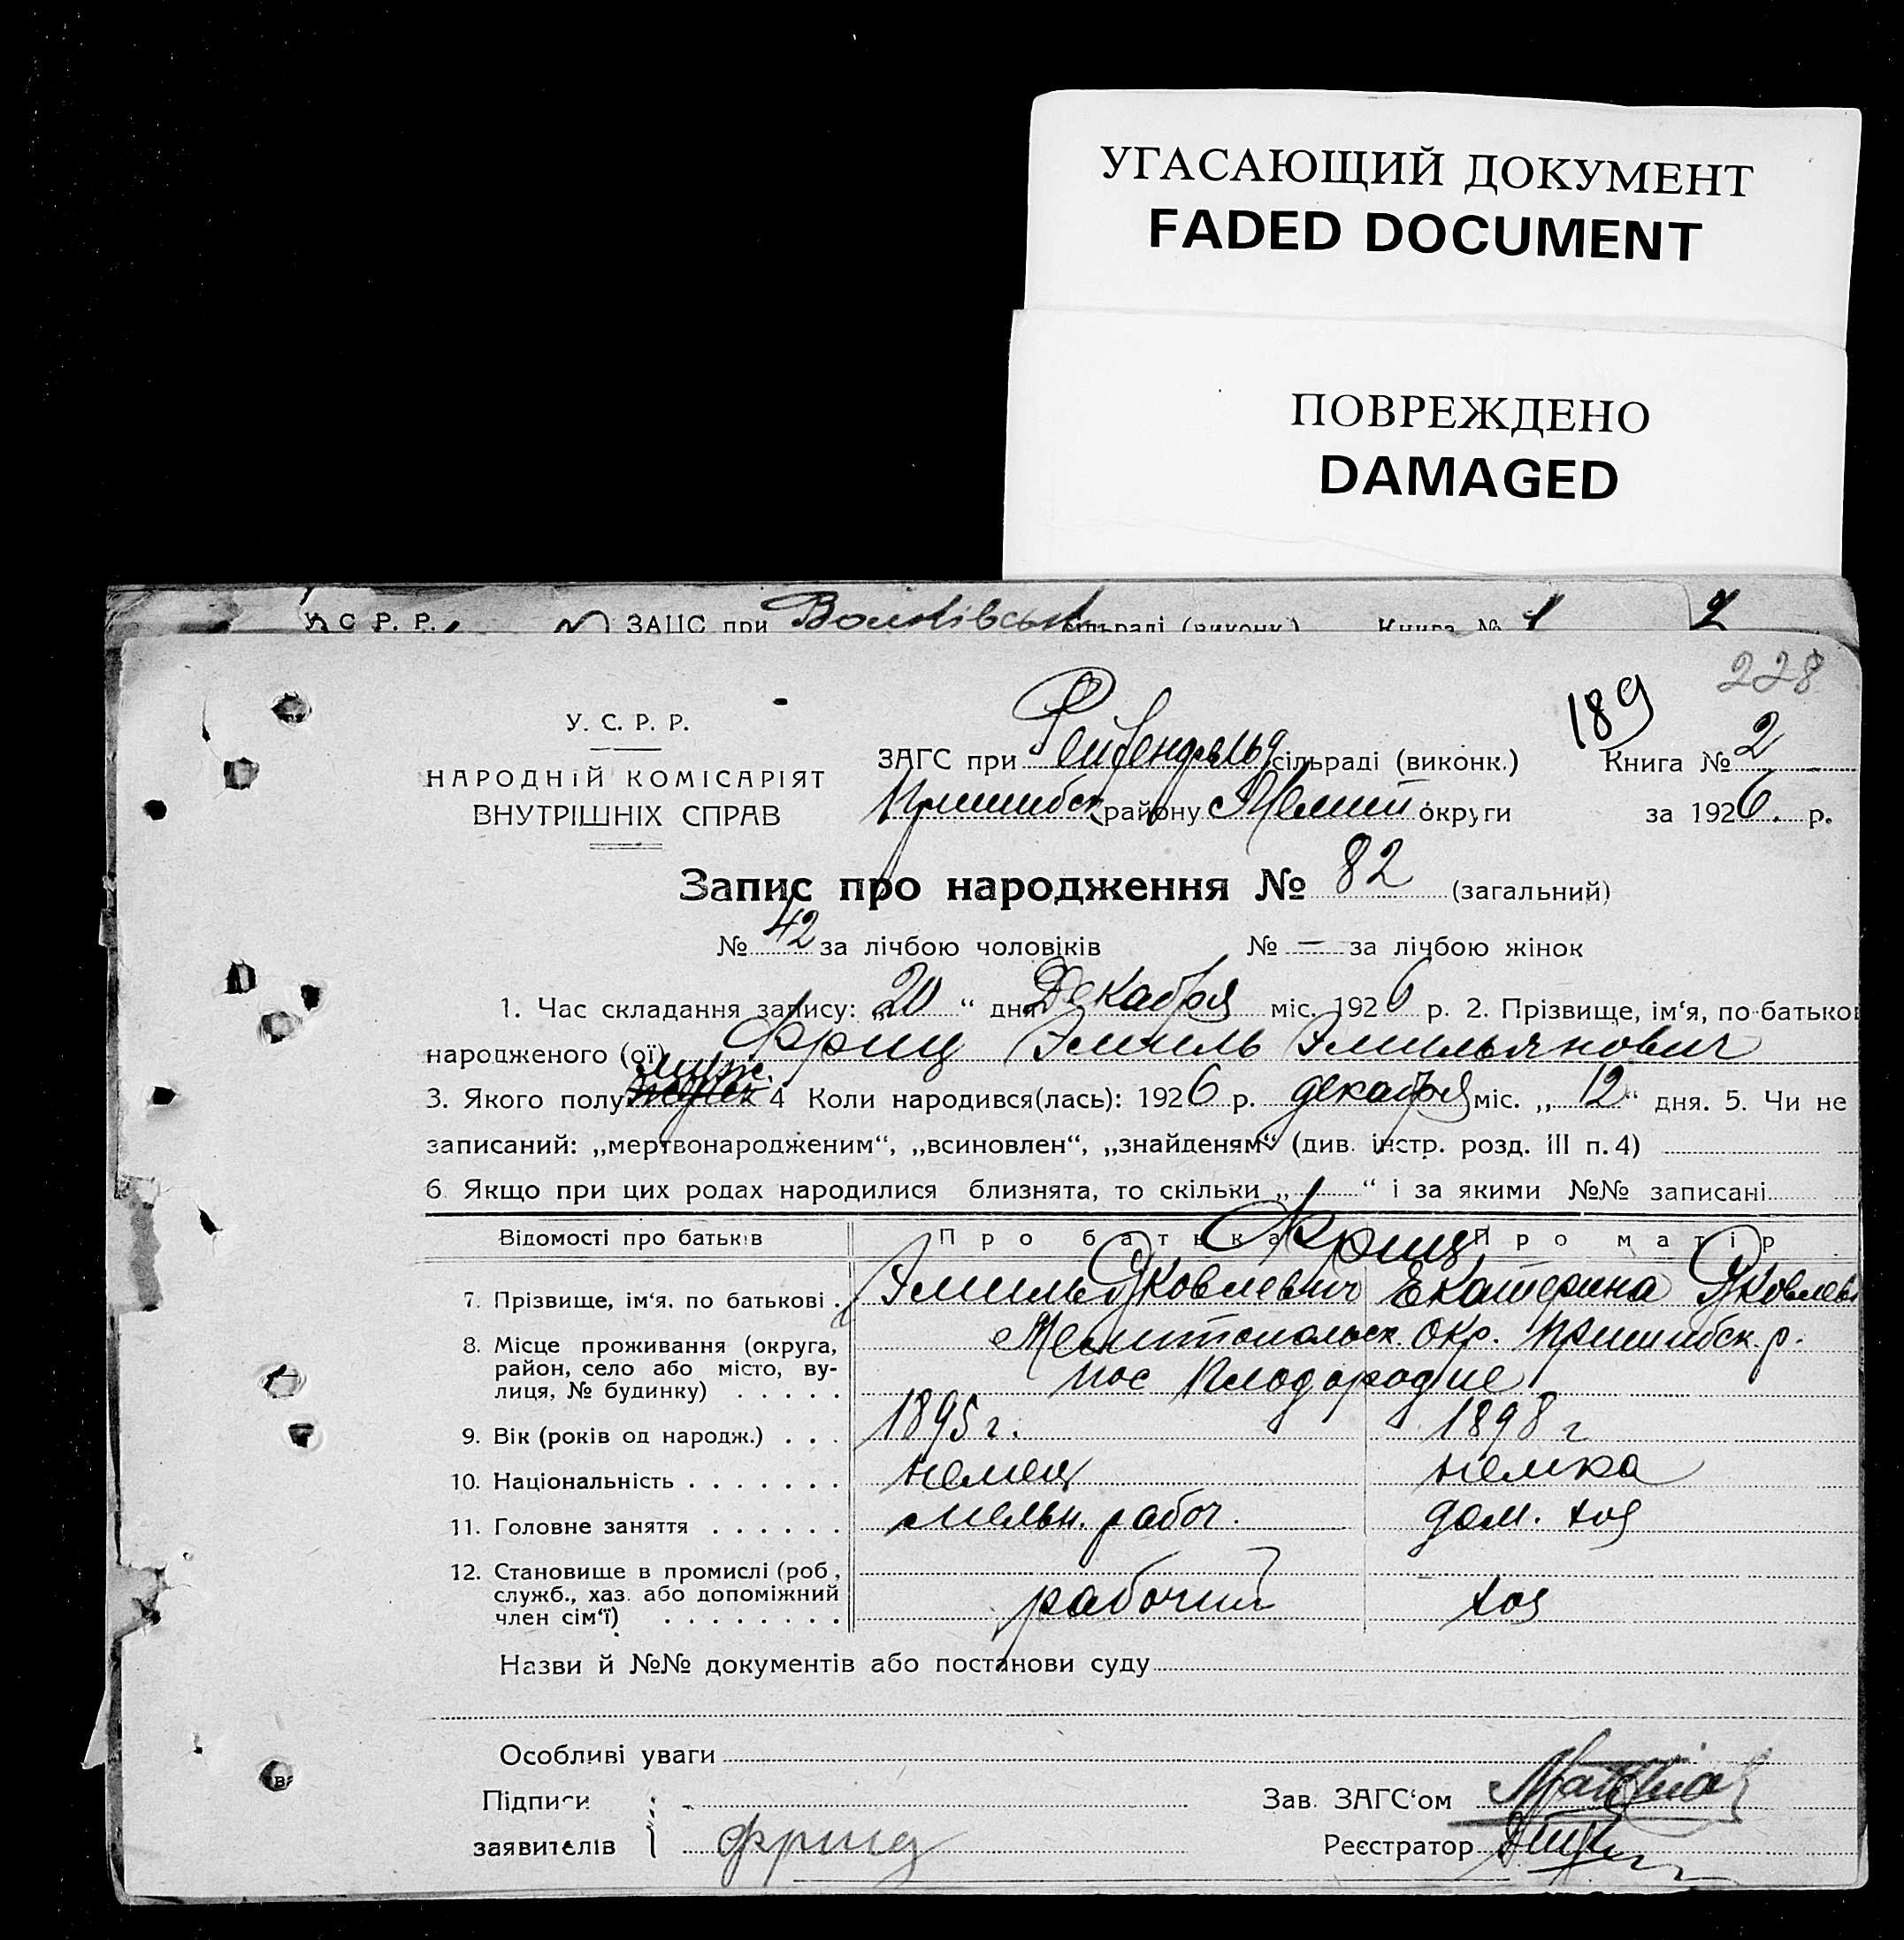 УГАСАЮЩИЙ ДОКУМЕНТ
FADED DOCUMENT
ПОВРЕЖДЕНО
DAMAGED
У. С. Р. Р. ЗАГС при сільраді (виконк.) Книга № 1 2
228
189
У. С. Р. Р.
НАРОДНІЙ КОМІСАРІЯТ
ВНУТРІШНІХ СПРАВ
ЗАГС при Рейбенфельд сільраді (виконк.) Книга № 2
Пришибск району Мелит округи за 1926. р.
Запис про народження № 82 (загальний)
№ 42 за лічбою чоловіків № — за лічбою жінок
1. Час складання запису: „20“ дня Декабря міс. 1926 р. 2. Прізвище, ім‘я, по-батьков
народженого (ої) Фриц Эмиль Эмильянович
3. Якого полу муж. 4 Коли народився(лась): 1926 р. декабря міс. „12“ дня. 5. Чи не
записаний: „мертвонародженим“, „всиновлен“, „знайденям“ (див. інстр. розд. III п. 4)
6 Якщо при цих родах народилися близнята, то скільки „ “ і за якими №№ записані
Відомості про батьків Про батька Про матір
Фриц
7. Прізвище, ім‘я. по батькові Эмиль Яковлевич Екатерина Яковлев
8. Місце проживання (округа, район, село або місто, вулиця, № будинку) Мелитопольск. окр. Пришибск. р.
пос Плодородие
9. Вік (років од народж.) 1895 г. 1898 г
10. Національність немец немка
11. Головне заняття мельн. рабоч. дом. хоз
12. Становище в промислі (роб, служб., хаз. або допоміжний член сім‘ї) рабочий хоз
Назви й №№ документів або постанови суду
Особливі уваги
Підписи
заявителів Фриц
Зав. ЗАГС‘ом
Реєстратор